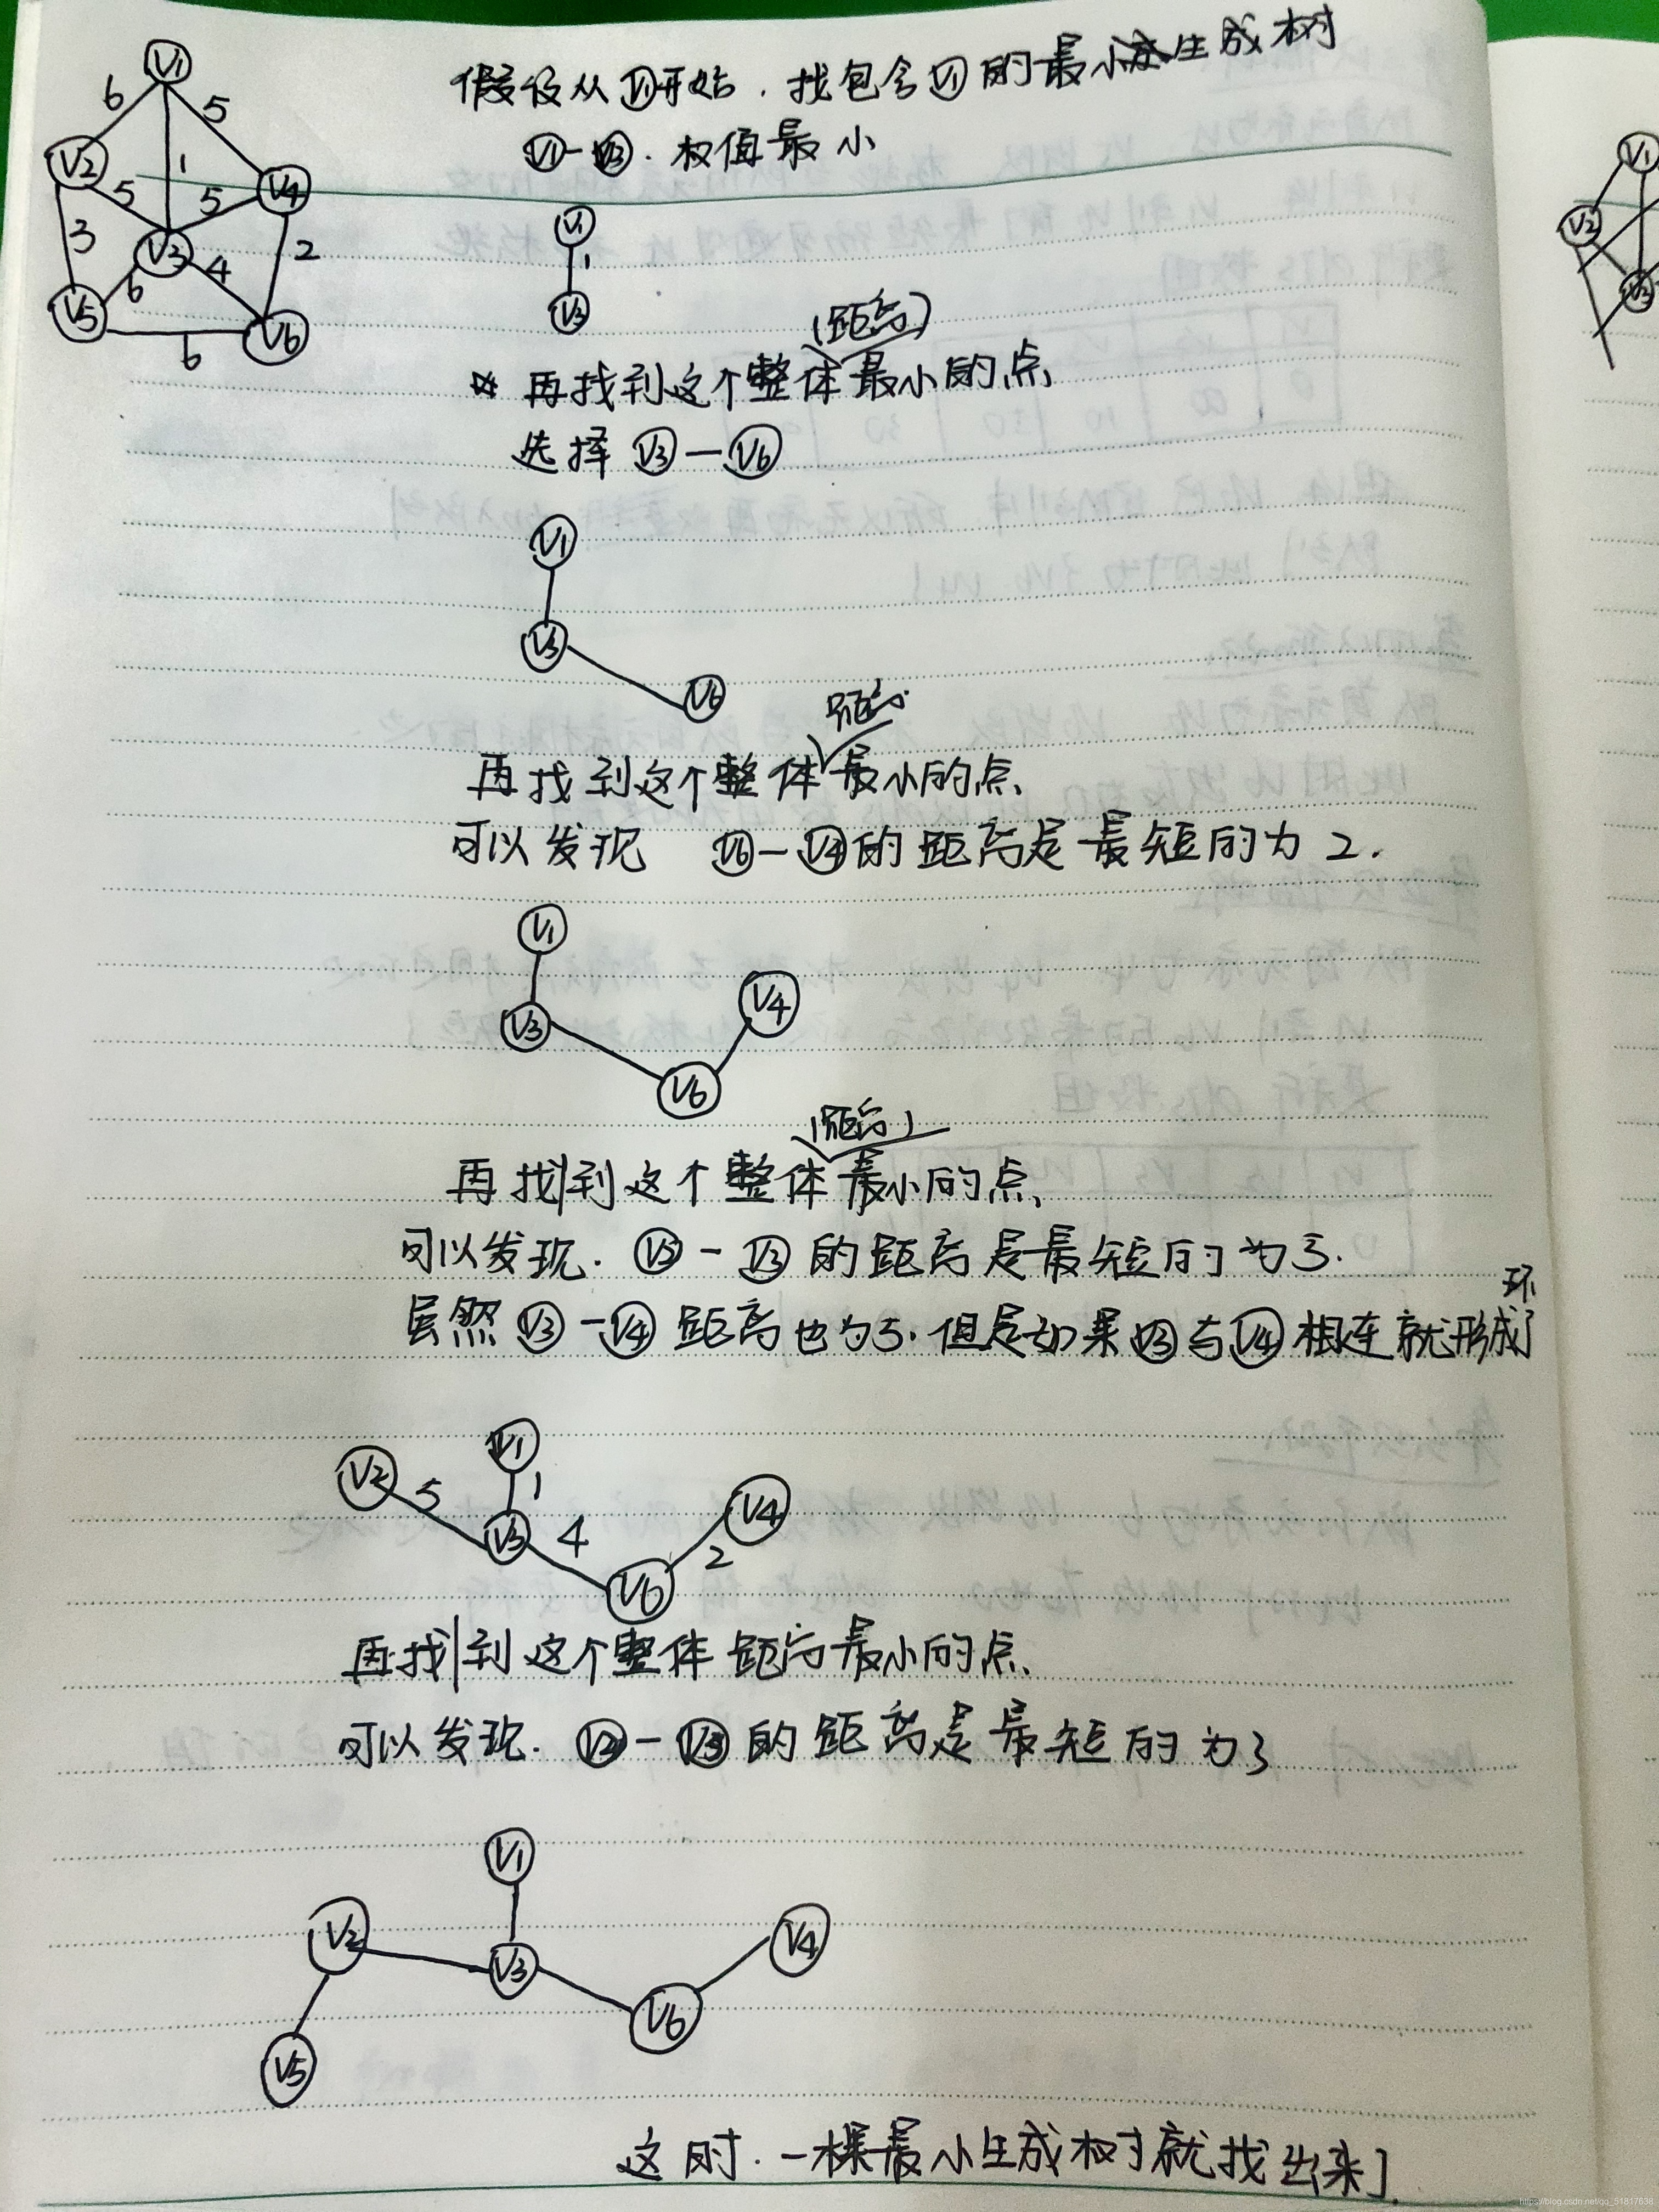 假设从V1开始.找包含V1的最小生成树
V1-V3.权值最小
V1
6
5
V2
1
V4
5
5
3
V3
2
6
4
V5
V6
6
V1
1
V3
(距离)
再找到这个整体最小的点、
选择 V3-V6
V1
V3
V6
距离
再找到这个整体最小的点、
可以发现 V6-V4的距离是最短的为2.
V1
V4
V3
V6
(距离)
再找到这个整体最小的点、
可以发现.V2-V3的距离是最短的为5.
虽然V3-V4距离也为5.但是如果V3与V4相连就形成了
环
V1
V2
5
1
V4
V3
4
2
V6
再找到这个整体距离最小的点、
可以发现.V2-V5的距离是最短的为3
V1
V2
V4
V3
V6
V5
这时.一棵最小生成树就找出来了
V1
V2
V3